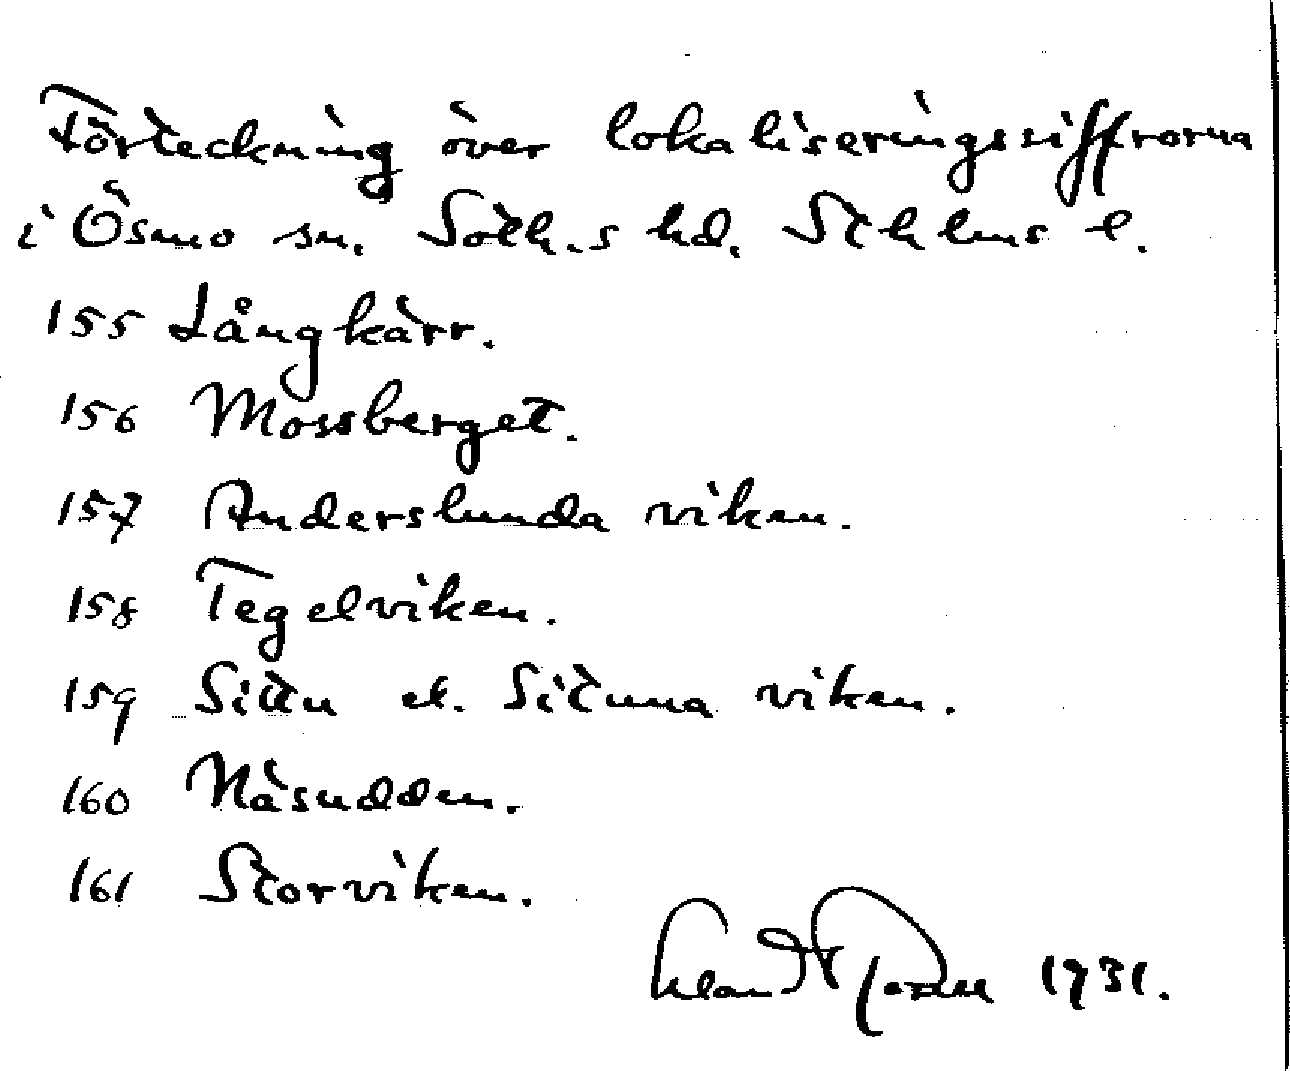 Förteckning över lokaliseringssiffrorna
i Ösmo sn. Soth.s hd. Sthlms l.
155 Långkärr.
156 Mossberget.
157 Anderslunda viken.
158 Tegelviken.
159 Sittu el. Situna viken.
160 Näsudden.
161 Storviken.
1931.